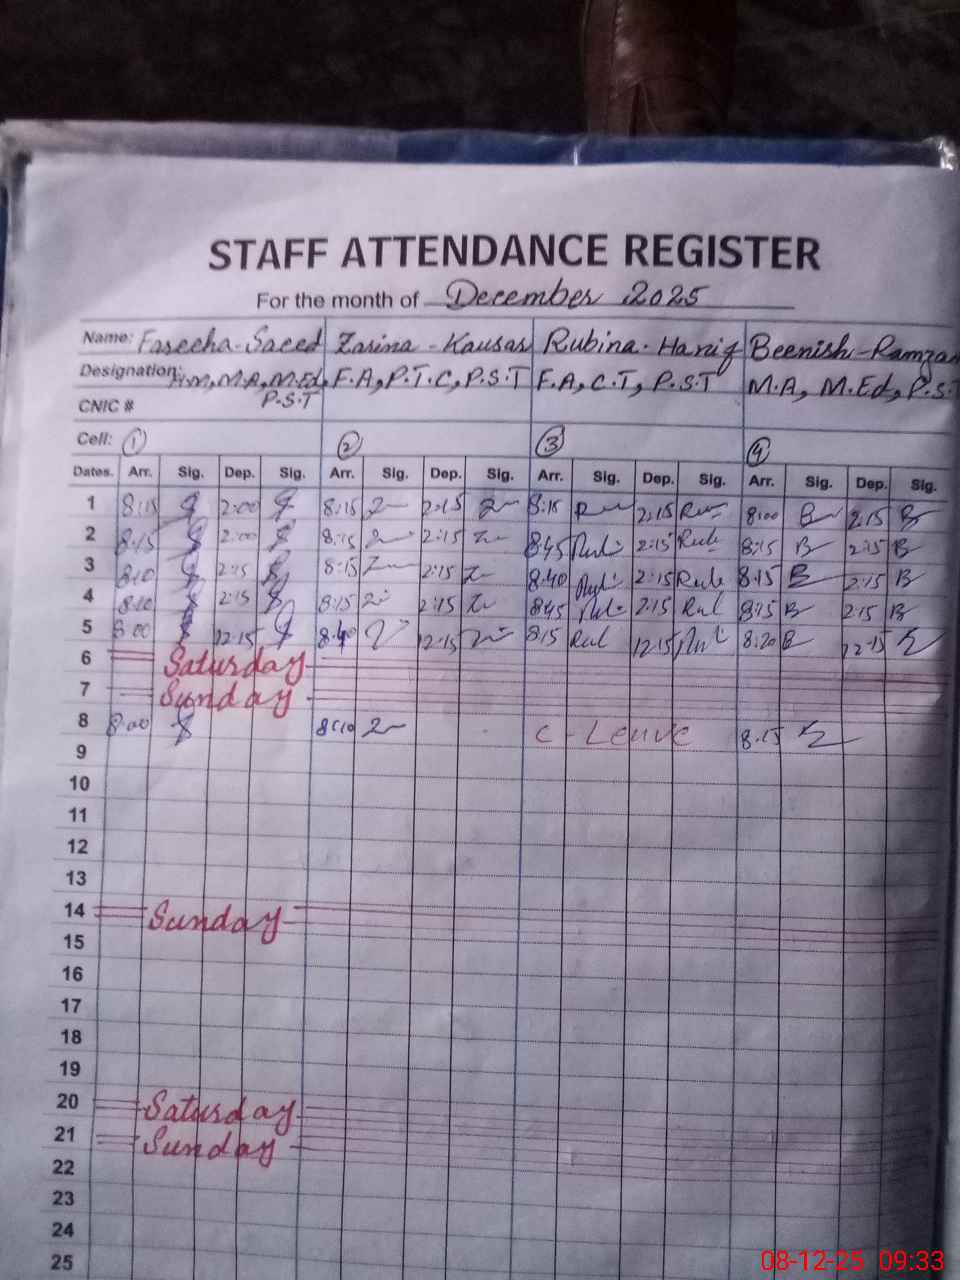 STAFF ATTENDANCE REGISTER
For the month of December 2025
Name: Faseeha-Saeed Zarina-Kausar Rubina-Hanif Beenish-Ramzan
Designation: H.M, M.A, M.Ed, P.S.T F.A, P.T.C, P.S.T F.A, C.T, P.S.T M.A, M.Ed, P.S.T
CNIC #
Cell: 1 2 3 4
Dates. Arr. Sig. Dep. Sig. Arr. Sig. Dep. Sig. Arr. Sig. Dep. Sig. Arr. Sig. Dep. Sig.
1 8:15 2:00 8:15 2:15 8:15 2:15 8:00 B 2:15 B
2 8:15 2:00 8:15 2:15 8:45 Rubi 2:15 Rub 8:15 B 2:15 B
3 8:10 2:15 8:15 2:15 8:40 2:15 Rub 8:15 B 2:15 B
4 8:10 2:15 8:15 2:15 8:45 2:15 Rub 8:15 B 2:15 B
5 8:00 12:15 12:15 8:15 Rub 12:15 8:20 B 12:15
6 Saturday
7 Sunday
8 8:00 8:10 C-Leave 8:15
9
10
11
12
13
14 Sunday
15
16
17
18
19
20 Saturday
21 Sunday
22
23
24
25
08-12-25 09:33